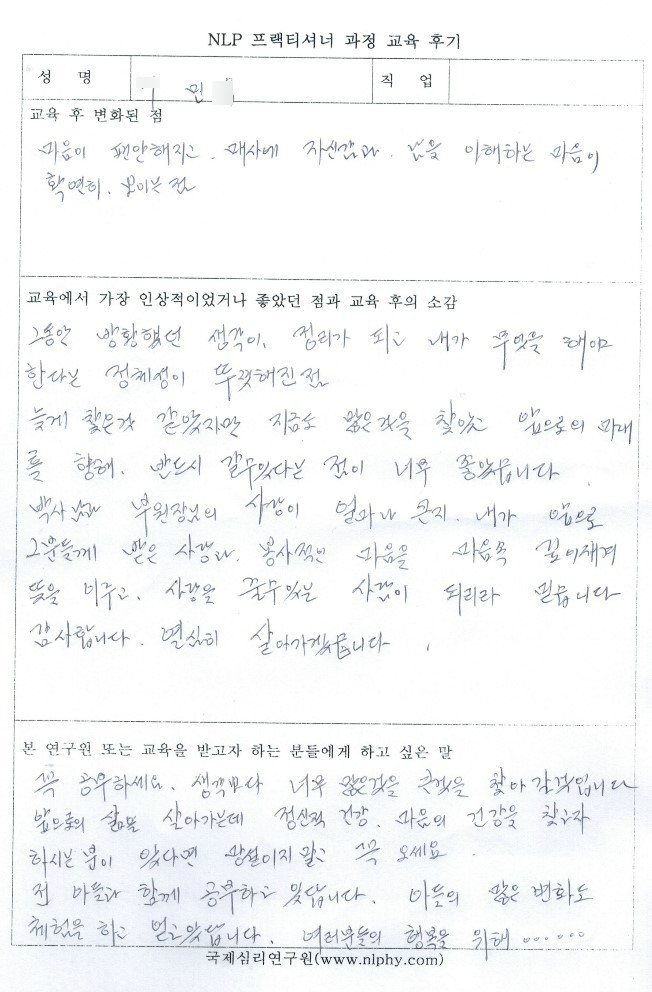 NLP 프랙티셔너 과정 교육 후기
성 명 민 직 업
교육 후 변화된 점
마음이 편안해지고. 매사에 자신감과. 남을 이해하는 마음이
확연히. 보이는 점
교육에서 가장 인상적이었거나 좋았던 점과 교육 후의 소감
그동안 방황했던 생각이. 정리가 되고 내가 무엇을 해야
한다는 정체성이 뚜렷해진 점
늦게 찾은것 같았지만 지금도 많은것을 찾았고 앞으로의 미래
를 향해. 반드시 갈수있다는 점이 너무 좋았읍니다
박사님과 부원장님의 사랑이 얼마나 큰지. 내가 앞으로
그분들께 받은 사랑과. 봉사적인 마음을 마음속 깊이새겨
뜻을 이루고. 사랑을 줄수있는 사람이 되리라 믿읍니다
감사합니다. 열심히 살아가겠읍니다.
본 연구원 또는 교육을 받고자 하는 분들에게 하고 싶은 말
꼭 공부하세요. 생각보다 너무 많은것을 큰것을 찾아 갈것입니다
앞으로의 삶을 살아가는데 정신적 건강. 마음의 건강을 찾고자
하시는 분이 있다면 망설이지 말고 꼭 오세요.
전 아들과 함께 공부하고 있답니다. 아들의 많은 변화도
체험을 하고 얻고있답니다. 여러분들의 행복을 위해......
국제심리연구원(www.nlphy.com)